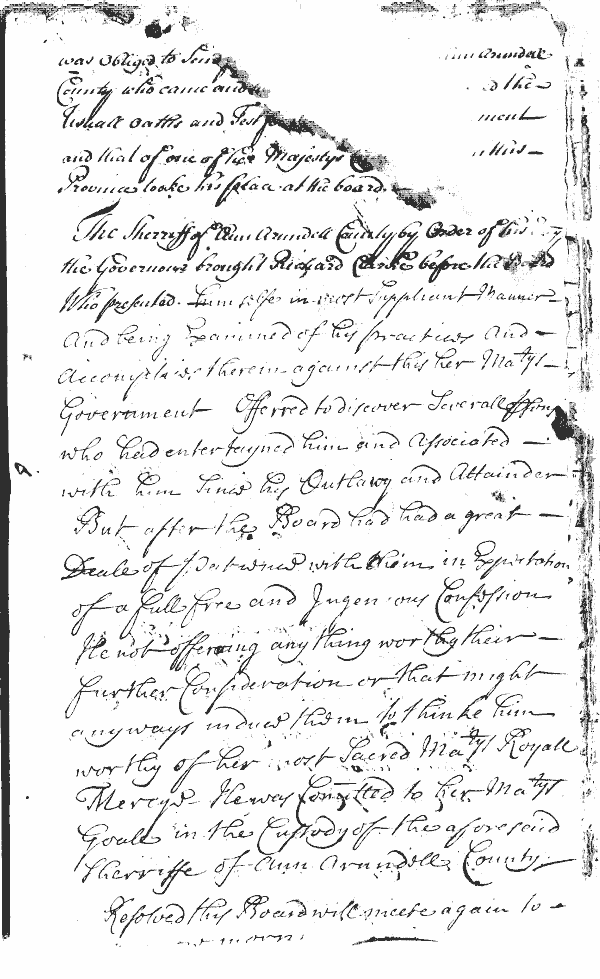 was obliged to Send Ann Arundell
County who came and the
Usuall Oaths and Test ment
and that of one of her Majestys this
Province tooke his place at the board.
The Sherriff of Ann Arundell County by Order of his
the Governour brought Richard Clarke before the Board
Who presented himselfe in most Suppliant Manner
And being Examined of his practices and
Accomplices therein against this her Matys
Government Offerred to discover Severall psons
who had entertayned him and associated
with him Since his Outlawry and Attainder
But after the Board had had a great
Deale of Patience with him in Expectation
of a full free and Ingenious Confession
He not offering any thing worthy their
further Consideration or that might
anyways induce them to thinke him
worthy of her most Sacred Matys Royall
Mercye He was Comitted to her Matys
Goale in the Custody of the aforesaid
Sherriffe of Ann Arundell County
Resolved this Board will meete again to
morrow